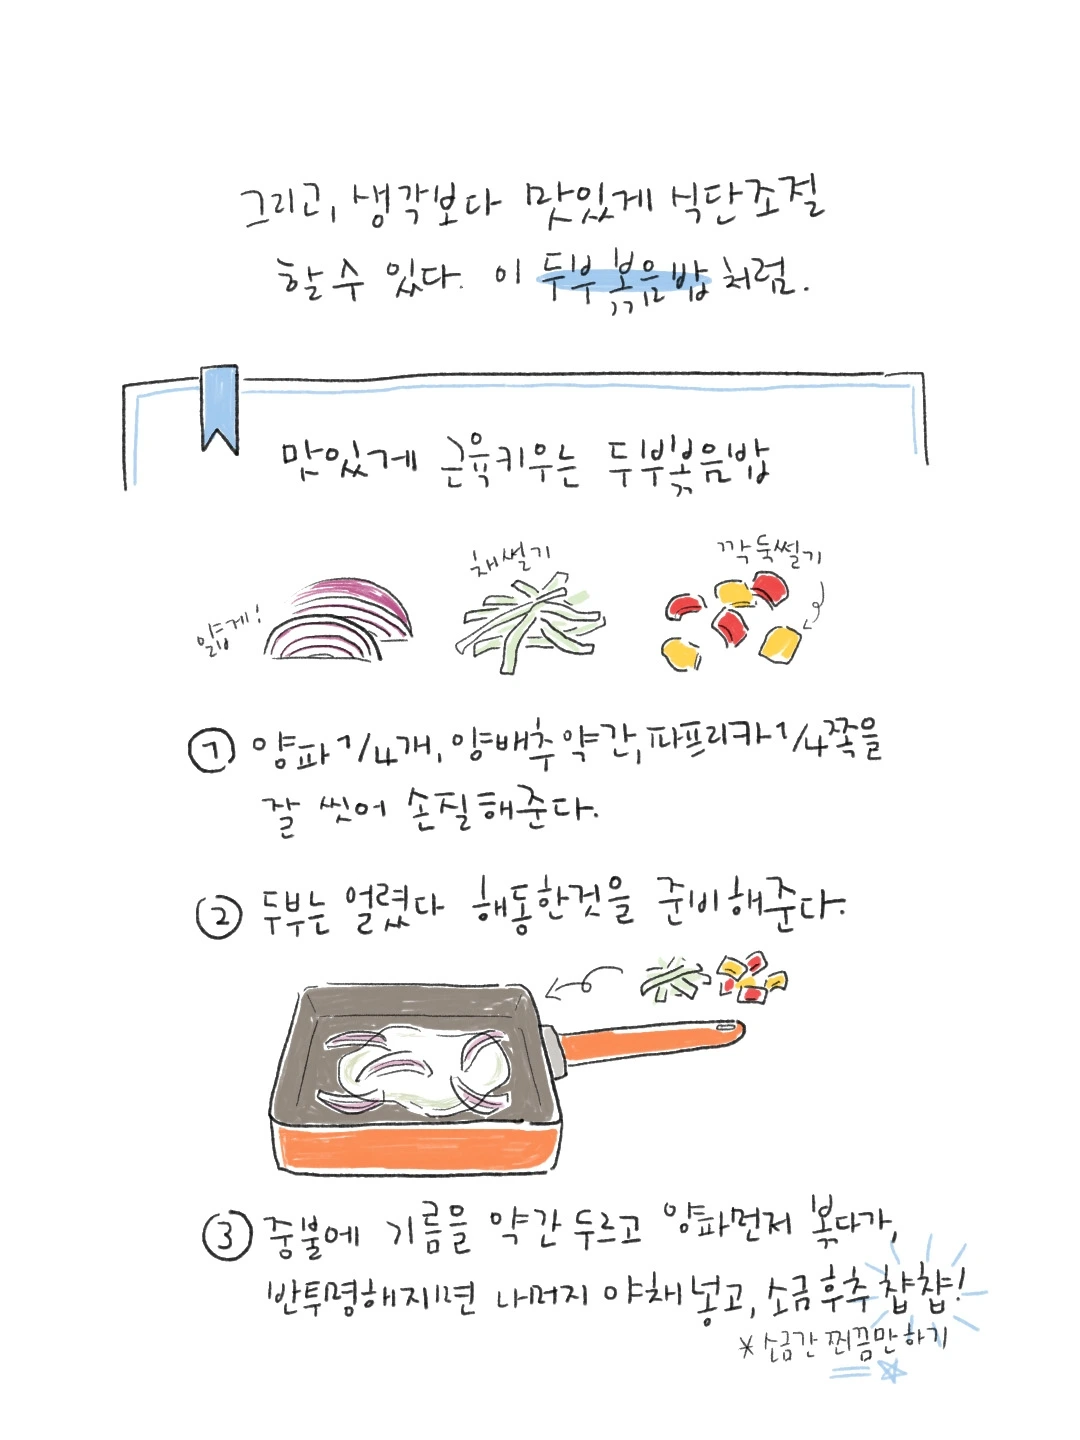 그리고, 생각보다 맛있게 식단조절
할 수 있다. 이 두부볶음밥처럼.
맛있게 근육키우는 두부볶음밥
얇게!
채썰기
깍둑썰기
① 양파 1/4개, 양배추 약간, 파프리카 1/4쪽을
잘 씻어 손질해준다.
② 두부는 얼렸다 해동한것을 준비해준다.
③ 중불에 기름을 약간 두르고 양파먼저 볶다가,
반투명해지면 나머지 야채 넣고, 소금후추 챱챱!
* 소금간 쪄끔만 하기